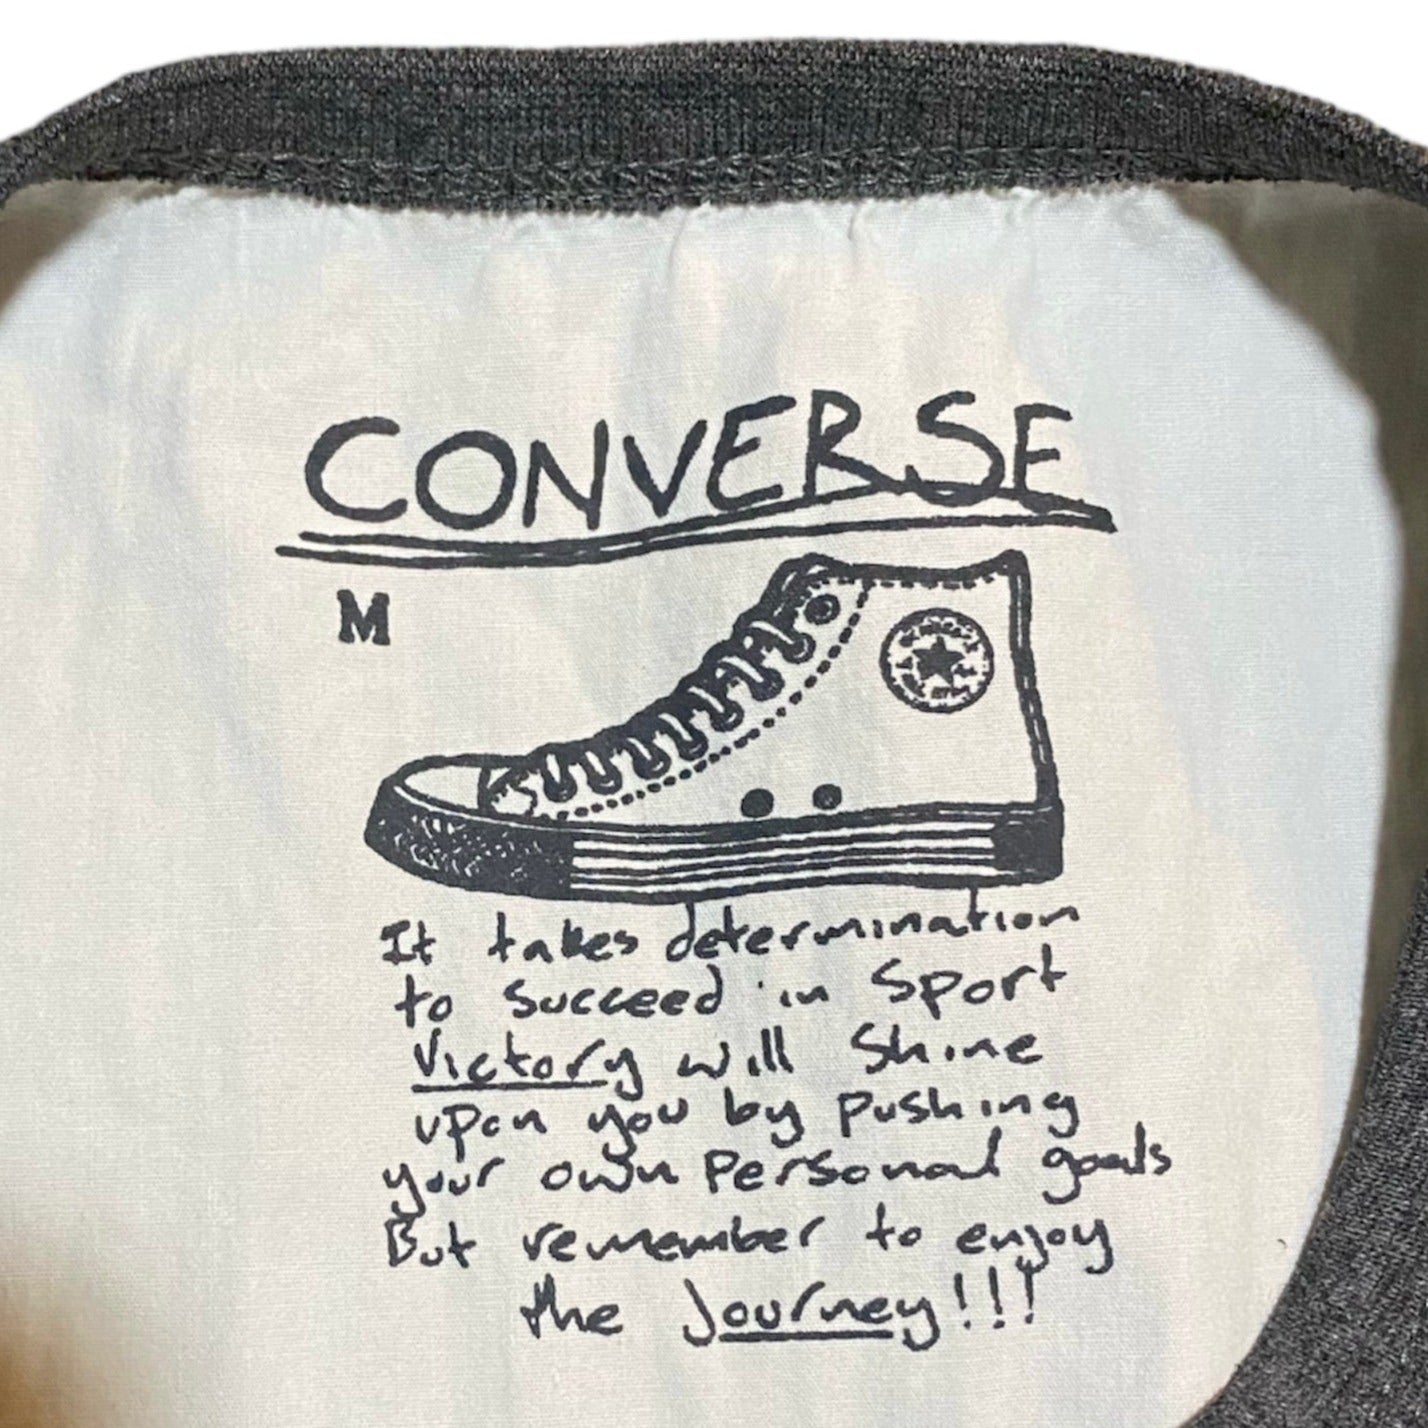 CONVERSE
M
It takes determination
to succeed in Sport
Victory will Shine
upon you by pushing
your own Personal goals
But remember to enjoy
the Journey!!!